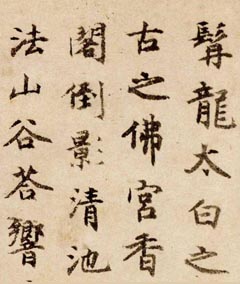 髯龍太白之
古之佛宮香
閣倒影清池
法山谷荅響